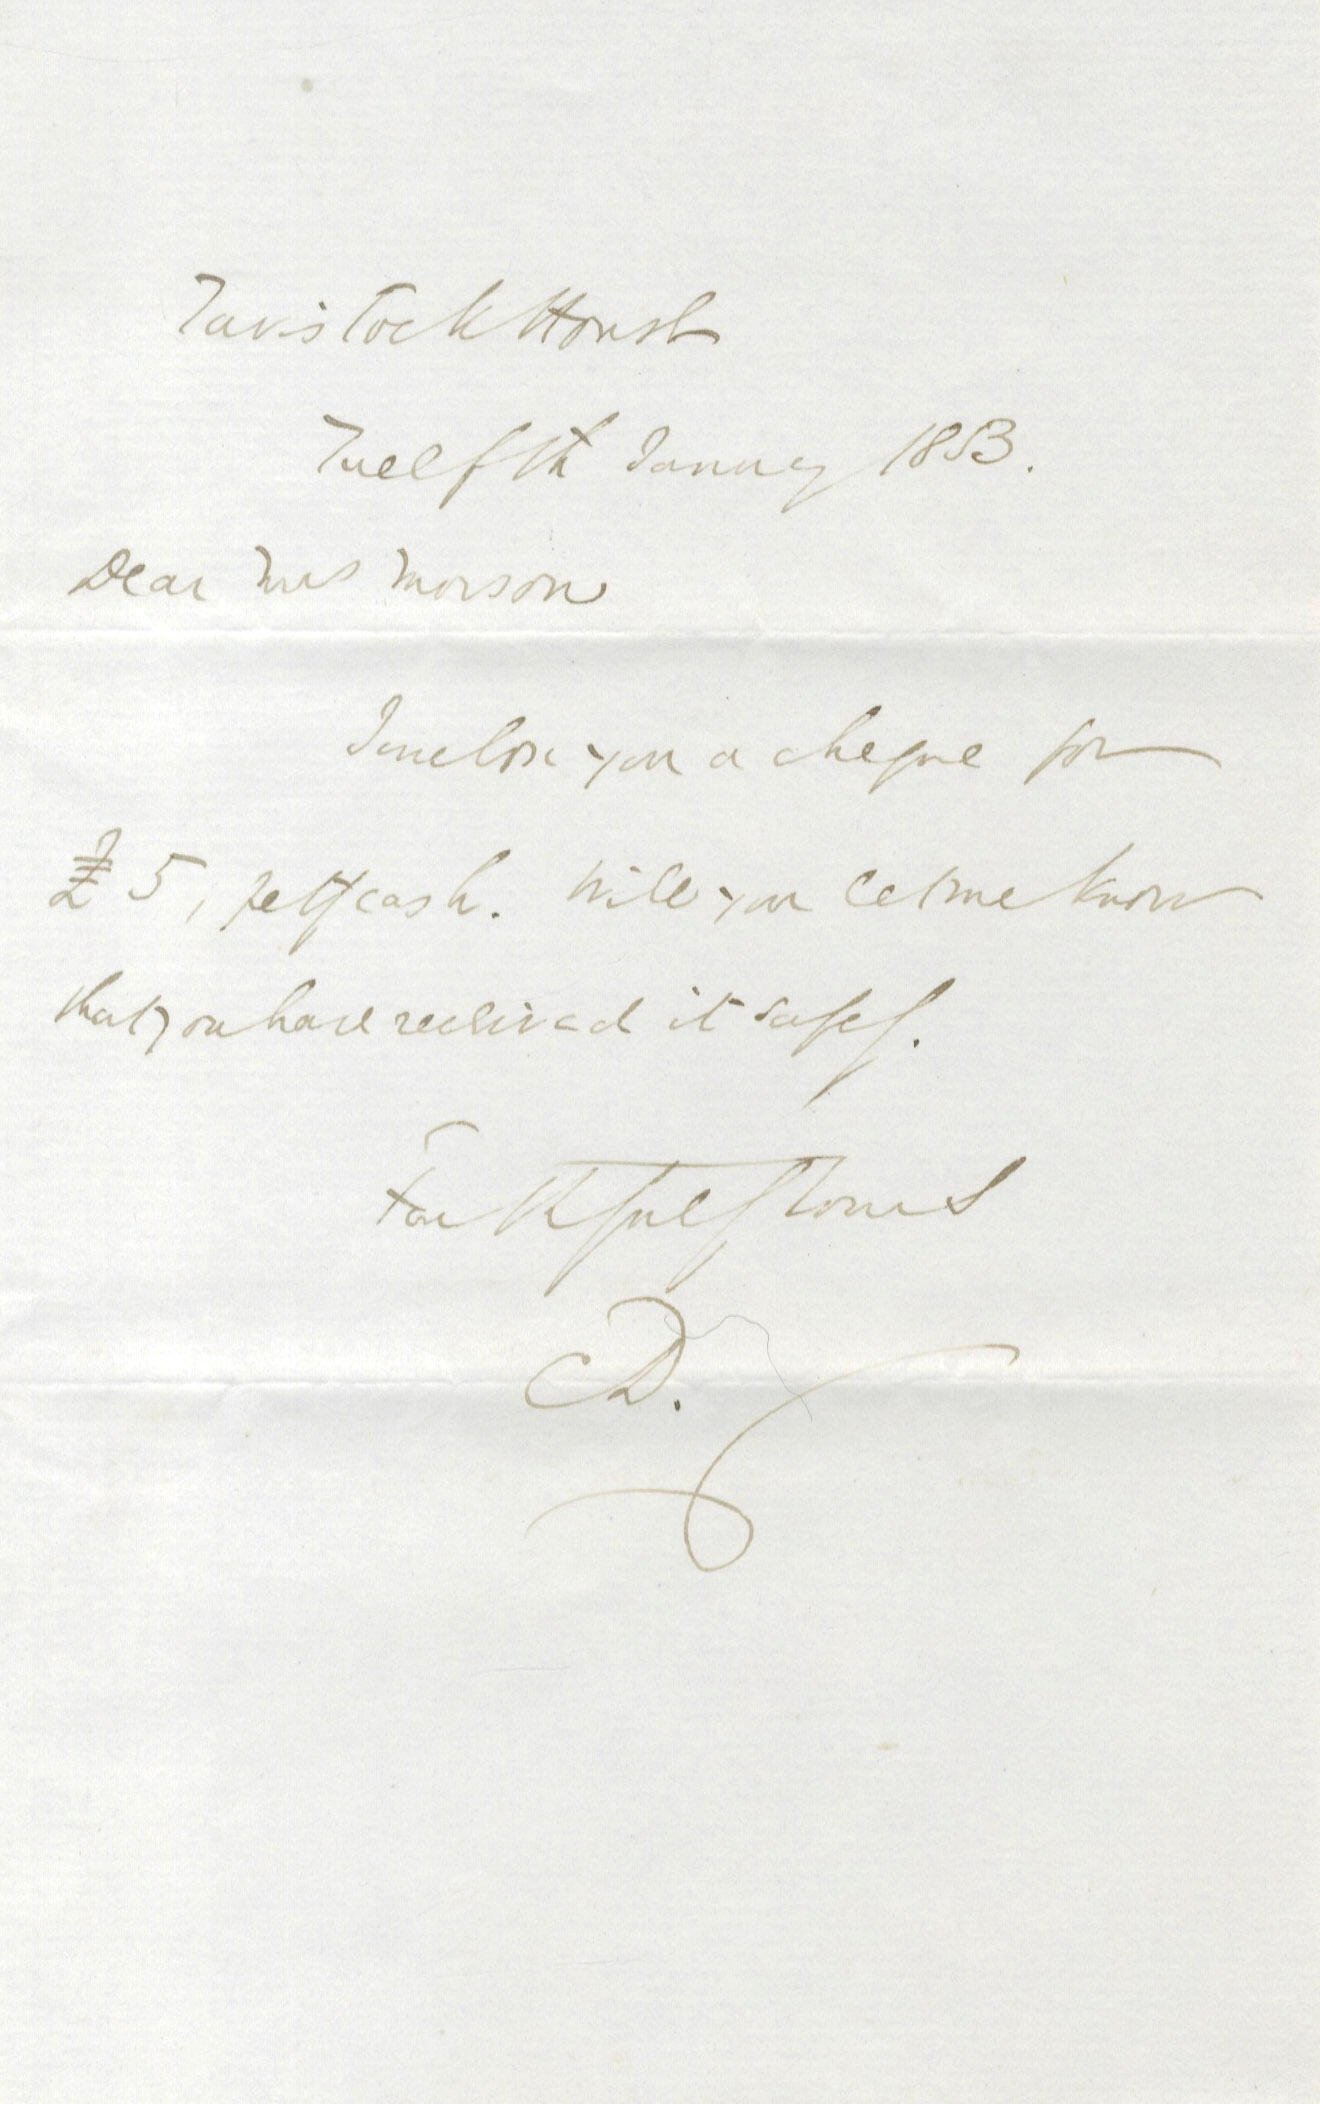 Tavistock House
Twelfth January 1853.
Dear Mrs Morson
I inclose you a cheque for
£5, petty cash. Will you let me know
that you have received it safely.
Faithfully Yours
CD.